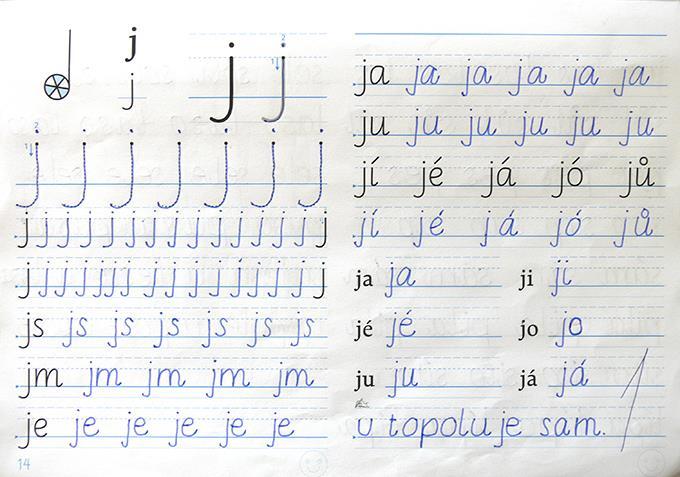 j
j
j j
2
1
2
1
j j j j j j j
j j j j j j j j j j j j j j j
j j j j j j j j j j j j j j j
js js js js js js js
jm jm jm jm jm
je je je je je je
14
ja ja ja ja ja ja
ju ju ju ju ju ju
jí jé já jó jů
jí jé já jó jů
ja ja ji ji
jé jé jo jo
ju ju já já
u topolu je sam.
1